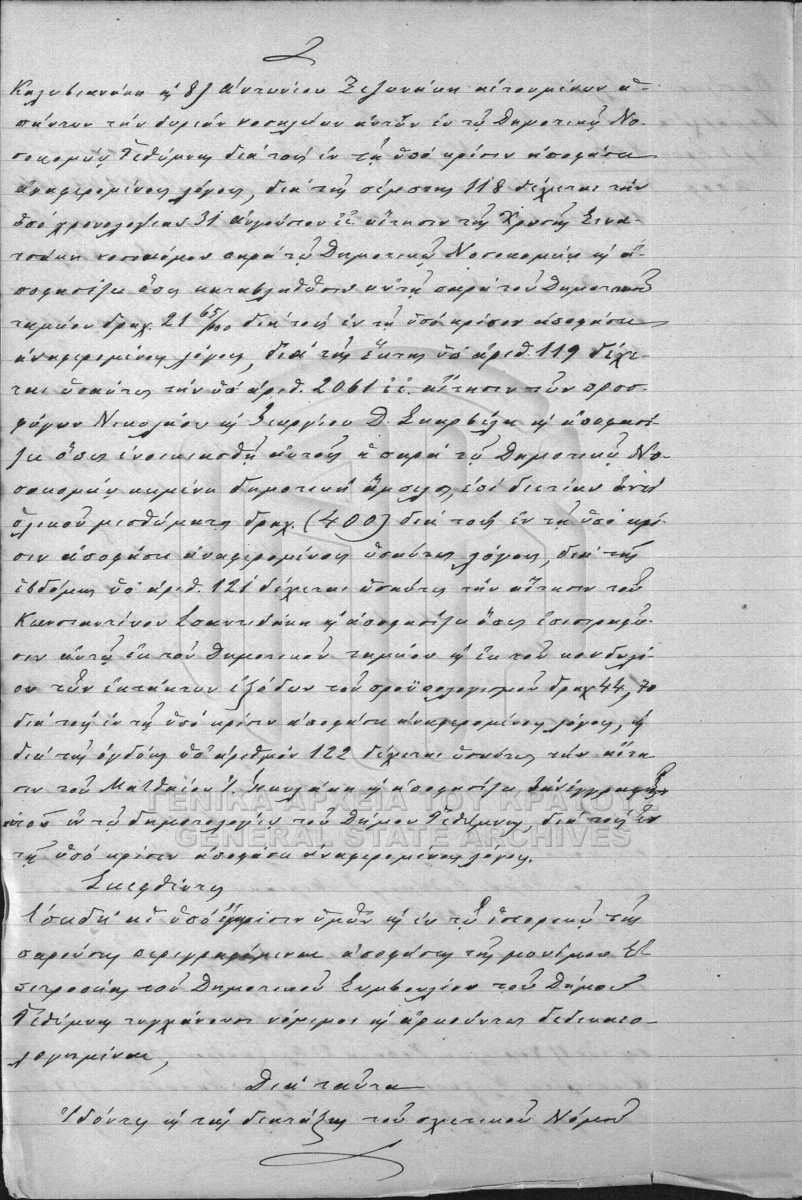 Καλυβιανάκη κ 8) Αντωνίου Ξεξωνάκη αἰτουμένων ἁ-
πάντων τὴν δωρεάν νοσηλείαν αὐτῶν ἐν τῷ Δημοτικῷ Νο-
σοκομείῳ Ρεθύμνης διά τούς ἐν τῇ ὑπό κρίσιν ἀποφάσει
ἀναφερομένους λόγους, διά τῆς πέμπτης 118 δέχεται τήν
ὑπό χρονολογίαν 31 Αὐγούστου ἐ.ἔ. αἴτησιν τῆς Χρυσῆς
νοσοκόμου παρά τῷ Δημοτικῷ Νοσοκομείῳ κ ἀ-
ποφασίζει ὅπως καταβληθῶσιν αὐτῇ παρά τοῦ Δημοτικοῦ
ταμείου δραχ. 21 65/100 διά τούς ἐν τῇ ὑπό κρίσιν ἀποφάσει
ἀναφερομένους λόγους, διά τῆς ἕκτης ὑπ' ἀριθ. 119 δέχε-
ται ὡσαύτως τήν ὑπ' ἀριθ. 2061 ἐ.ἔ. αἴτησιν τῶν προσ-
φύγων Νικολάου κ Γεωργίου Δ. Σκαρβέλη κ ἀποφασί-
ζει ὅπως ἐνοικιασθῇ αὐτοῖς ἡ παρά τῷ Δημοτικῷ Νο-
σοκομείῳ κειμένη δημοτική ἄμπελος ἐπί διετίαν ἀντί
ὁλικοῦ μισθώματος δραχ. (400) διά τούς ἐν τῇ ὑπό κρί-
σιν ἀποφάσει ἀναφερομένους ὡσαύτως λόγους, διά τῆς
ἑβδόμης ὑπ' ἀριθ. 121 δέχεται ὡσαύτως τήν αἴτησιν τοῦ
Κωνσταντίνου Σπαντιδάκη κ ἀποφασίζει ὅπως ἐπιστραφῶ-
σιν αὐτῷ ἐκ τοῦ Δημοτικοῦ ταμείου κ ἐκ τοῦ κονδυλί-
ου τῶν ἐκτάκτων ἐξόδων τοῦ προϋπολογισμοῦ δραχ 44,70
διά τούς ἐν τῇ ὑπό κρίσιν ἀποφάσει ἀναφερομένους λόγους, κ
διά τῆς ὀγδόης ὑπ' ἀριθμόν 122 δέχεται ὡσαύτως τήν αἴτη-
σιν τοῦ Ματθαίου Ι. κ ἀποφασίζει τήν ἐγγραφήν
αὐτοῦ ἐν τῷ δημοτολογίῳ τοῦ Δήμου Ρεθύμνης, διά τούς ἐν
τῇ ὑπό κρίσιν ἀποφάσει ἀναφερομένους λόγους.
Σκεφθέντες
Ἐπειδή αἱ ὑπό κρίσιν ὑμῶν κ ἐν τῷ ἱστορικῷ τῆς
παρούσης περιγραφόμεναι ἀποφάσεις τῆς μονίμου Ἐ-
πιτροπῆς τοῦ Δημοτικοῦ Συμβουλίου τοῦ Δήμου
Ρεθύμνης τυγχάνουσι νόμιμοι κ ἀρκούντως δεδικαιο-
λογημέναι,
Διά ταῦτα
Ἰδόντες κ τάς διατάξεις τοῦ σχετικοῦ Νόμου
ΓΕΝΙΚΑ ΑΡΧΕΙΑ ΤΟΥ ΚΡΑΤΟΥΣ
GENERAL STATE ARCHIVES